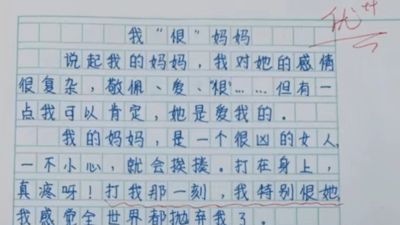 我“恨”妈妈
优++
说起我的妈妈，我对她的感情
很复杂，敬佩、爱、“恨”……但有一
点我可以肯定，她是爱我的。
我的妈妈，是一个很凶的女人，
一不小心，就会挨揍。打在身上，
真疼呀！打我那一刻，我特别恨她，
我感觉全世界都抛弃我了。